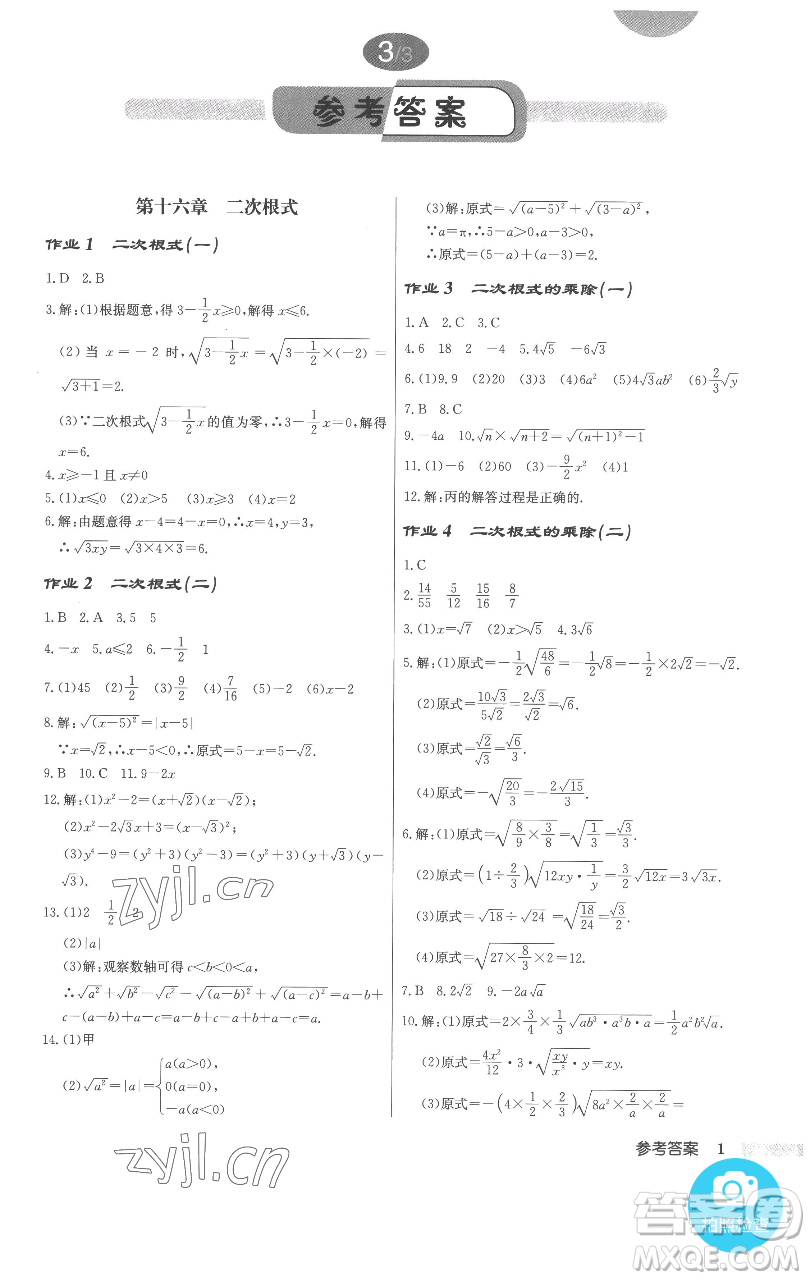 3/3
参考答案
第十六章 二次根式
作业1 二次根式(一)
1.D 2.B
3.解:(1)根据题意,得3-1/2x≥0,解得x≤6.
(2)当x=-2时,√(3-1/2x)=√(3-1/2×(-2))=
√(3+1)=2.
(3)∵二次根式√(3-1/2x)的值为零,∴3-1/2x=0,解得
x=6.
4.x≥-1且x≠0
5.(1)x≤0 (2)x>5 (3)x≥3
6.解:由题意得x-4=4-x=0,∴x=4,y=3,
∴√(3xy)=√(3×4×3)=6.
作业2 二次根式(二)
1.B 2.A 3.5 5
4.-x 5.a≤2 6.-1/2 1
7.(1)45 (2)1/2 (3)9/2 (4)7/16 (5)-10 (6)x-2
8.解:√((x-5)²)=|x-5|
∵x=√2,∴x-5<0,∴原式=5-x=5-√2.
9.B 10.C 11.9-2x
12.解:(1)x²-2=(x+√2)(x-√2);
(2)x²-2√3x+3=(x-√3)²;
(3)y⁴-9=(y²+3)(y²-3)=(y²+3)(y+√3)(y-
√3).
13.(1)2 1/2 2
(2)|a|
(3)解:观察数轴可得c<b<0<a,
∴√(a²)+√(b²)-√(c²)-√((a-b)²)+√((a-c)²)=a-b+
c-(a-b)+a-c=a.
14.(1)甲
(2)√(a²)=|a|={a(a>0),
0(a=0),
-a(a<0)
(3)解:原式=√((a-5)²)+√((3-a)²),
∵a=π,∴5-a>0,3-a<0,
∴原式=(5-a)+(a-3)=2.
作业3 二次根式的乘除(一)
1.A 2.C 3.C
4.6 18 2 -4 5.4√5 -6√3
6.(1)9.9 (2)20 (3)3 (4)6a² (5)4√3ab² (6)2/3√y
7.B 8.C
9.-4a 10.√n×√(n+2)=√((n+1)²-1)
11.(1)-6 (2)60 (3)-9/2x² (4)1
12.解:丙的解答过程是正确的.
作业4 二次根式的乘除(二)
1.C
2.14/55 5/12 15/16 8/7
3.(1)x=√7 (2)x>√5 4.3√6
5.解:(1)原式=-1/2√(48/6)=-1/2√8=-1/2×2√2=-√2.
(2)原式=10√3/5√2=2√3/√2=√6.
(3)原式=√2/√3=√6/3.
(4)原式=-√(20/3)=-2√15/3.
6.解:(1)原式=√(8/9×3/8)=√(1/3)=√3/3.
(2)原式=(1÷2/3)√(12xy·1/y)=3/2√(12x)=3√(3x).
(3)原式=√18÷√24=√(18/24)=√3/2.
(4)原式=√(27×8/3×2)=12.
7.B 8.2√2 9.-2a√a
10.解:(1)原式=2×3/4×1/3√(ab³·a³b·a)=1/2a²b²√a.
(2)原式=4x²/12·3·√(xy/x³·y)=xy.
(3)原式=-(4×1/2×2/3)√(8a²×2/a×2/a)=
zyjl.cn
zyjl.cn
参考答案 1
答案卷
拍照检查
MXQE.COM